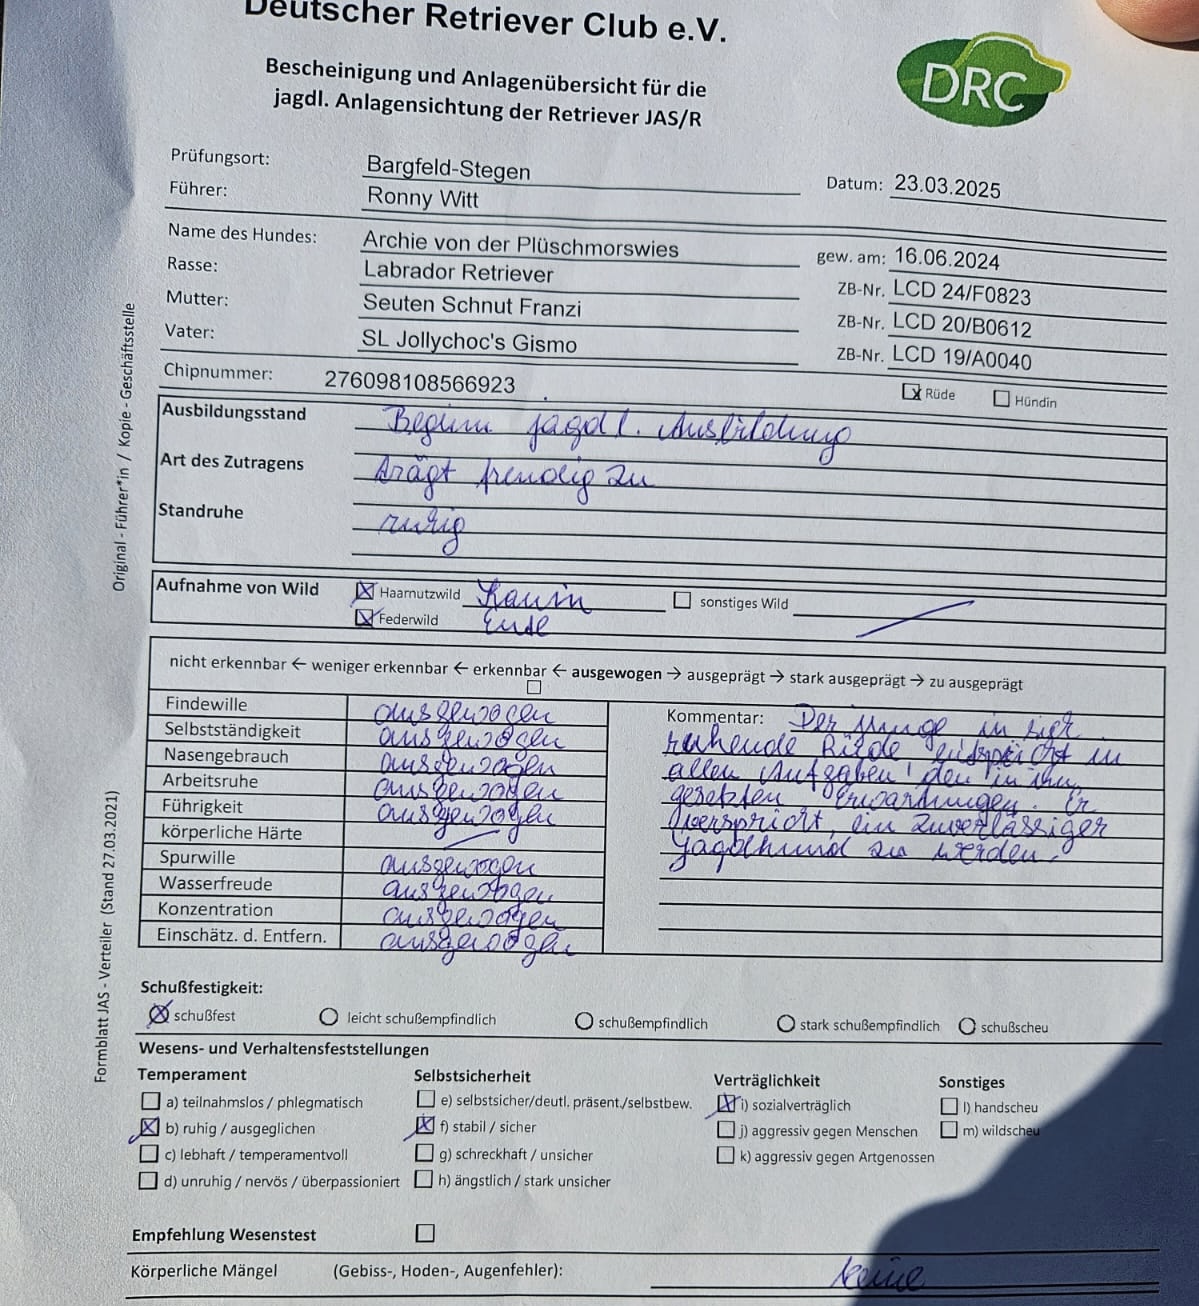 Deutscher Retriever Club e.V.
DRC
Bescheinigung und Anlagenübersicht für die
jagdl. Anlagensichtung der Retriever JAS/R
Prüfungsort: Bargfeld-Stegen Datum: 23.03.2025
Führer: Ronny Witt
Name des Hundes: Archie von der Plüschmorswies gew. am: 16.06.2024
Rasse: Labrador Retriever ZB-Nr. LCD 24/F0823
Mutter: Seuten Schnut Franzi ZB-Nr. LCD 20/B0612
Vater: SL Jollychoc's Gismo ZB-Nr. LCD 19/A0040
Chipnummer: 276098108566923 Rüde Hündin
Ausbildungsstand Beginn jagdl. Ausbildung
Art des Zutragens trägt freudig zu
Standruhe ruhig
Aufnahme von Wild Haarnutzwild Kanin sonstiges Wild
Federwild Ente
nicht erkennbar ← weniger erkennbar ← erkennbar ← ausgewogen → ausgeprägt → stark ausgeprägt → zu ausgeprägt
Findewille ausgewogen
Selbstständigkeit ausgewogen
Nasengebrauch ausgewogen
Arbeitsruhe ausgewogen
Führigkeit ausgewogen
körperliche Härte
Spurwille ausgewogen
Wasserfreude ausgewogen
Konzentration ausgewogen
Einschätz. d. Entfern. ausgewogen
Kommentar: Der junge in sich
ruhende Rüde entspricht in
allen Aufgaben den in ihn
gesetzten Erwartungen. Er
verspricht, ein zuverlässiger
Jagdhund zu werden.
Schußfestigkeit:
schußfest leicht schußempfindlich schußempfindlich stark schußempfindlich schußscheu
Wesens- und Verhaltensfeststellungen
Temperament Selbstsicherheit Verträglichkeit Sonstiges
a) teilnahmslos / phlegmatisch e) selbstsicher/deutl. präsent./selbstbew. i) sozialverträglich l) handscheu
b) ruhig / ausgeglichen f) stabil / sicher j) aggressiv gegen Menschen m) wildscheu
c) lebhaft / temperamentvoll g) schreckhaft / unsicher k) aggressiv gegen Artgenossen
d) unruhig / nervös / überpassioniert h) ängstlich / stark unsicher
Empfehlung Wesenstest
Körperliche Mängel (Gebiss-, Hoden-, Augenfehler): keine
Original - Führer*in / Kopie - Geschäftsstelle
Formblatt JAS - Verteiler (Stand 27.03.2021)